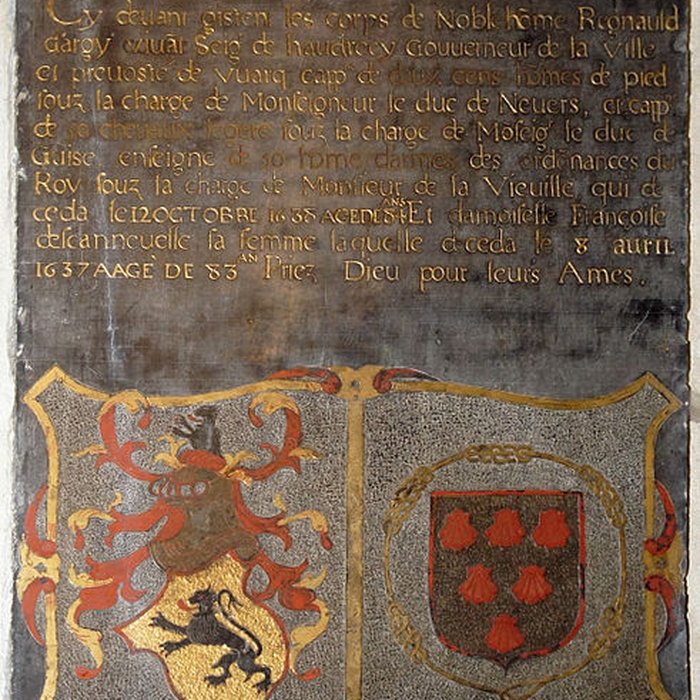 Cy devant gisteni les corps de Noble hôme Regnauld
dargy Seig de haudrecy Gouuerneur de la Ville
et preuosté de vuarq capp̄ de deux cens hômes de pied
souz la charge de Monseigneur le duc de Neuers, et capp̄
de 50 cheuaux legere souz la charge de Môseig le duc de
Guise enseigne de 50 hôme darmes des ordênances du
Roy souz la charge de Monsieur de la Vieuille, qui de
ceda le 12 OCTOBRE 1638 AGE DE 84 ANS Et damoiselle Françoise
descanneuelle sa femme laquelle deceda le 8 auril
1637 AAGÈ DE 83 AN Priez Dieu pour leurs Ames.